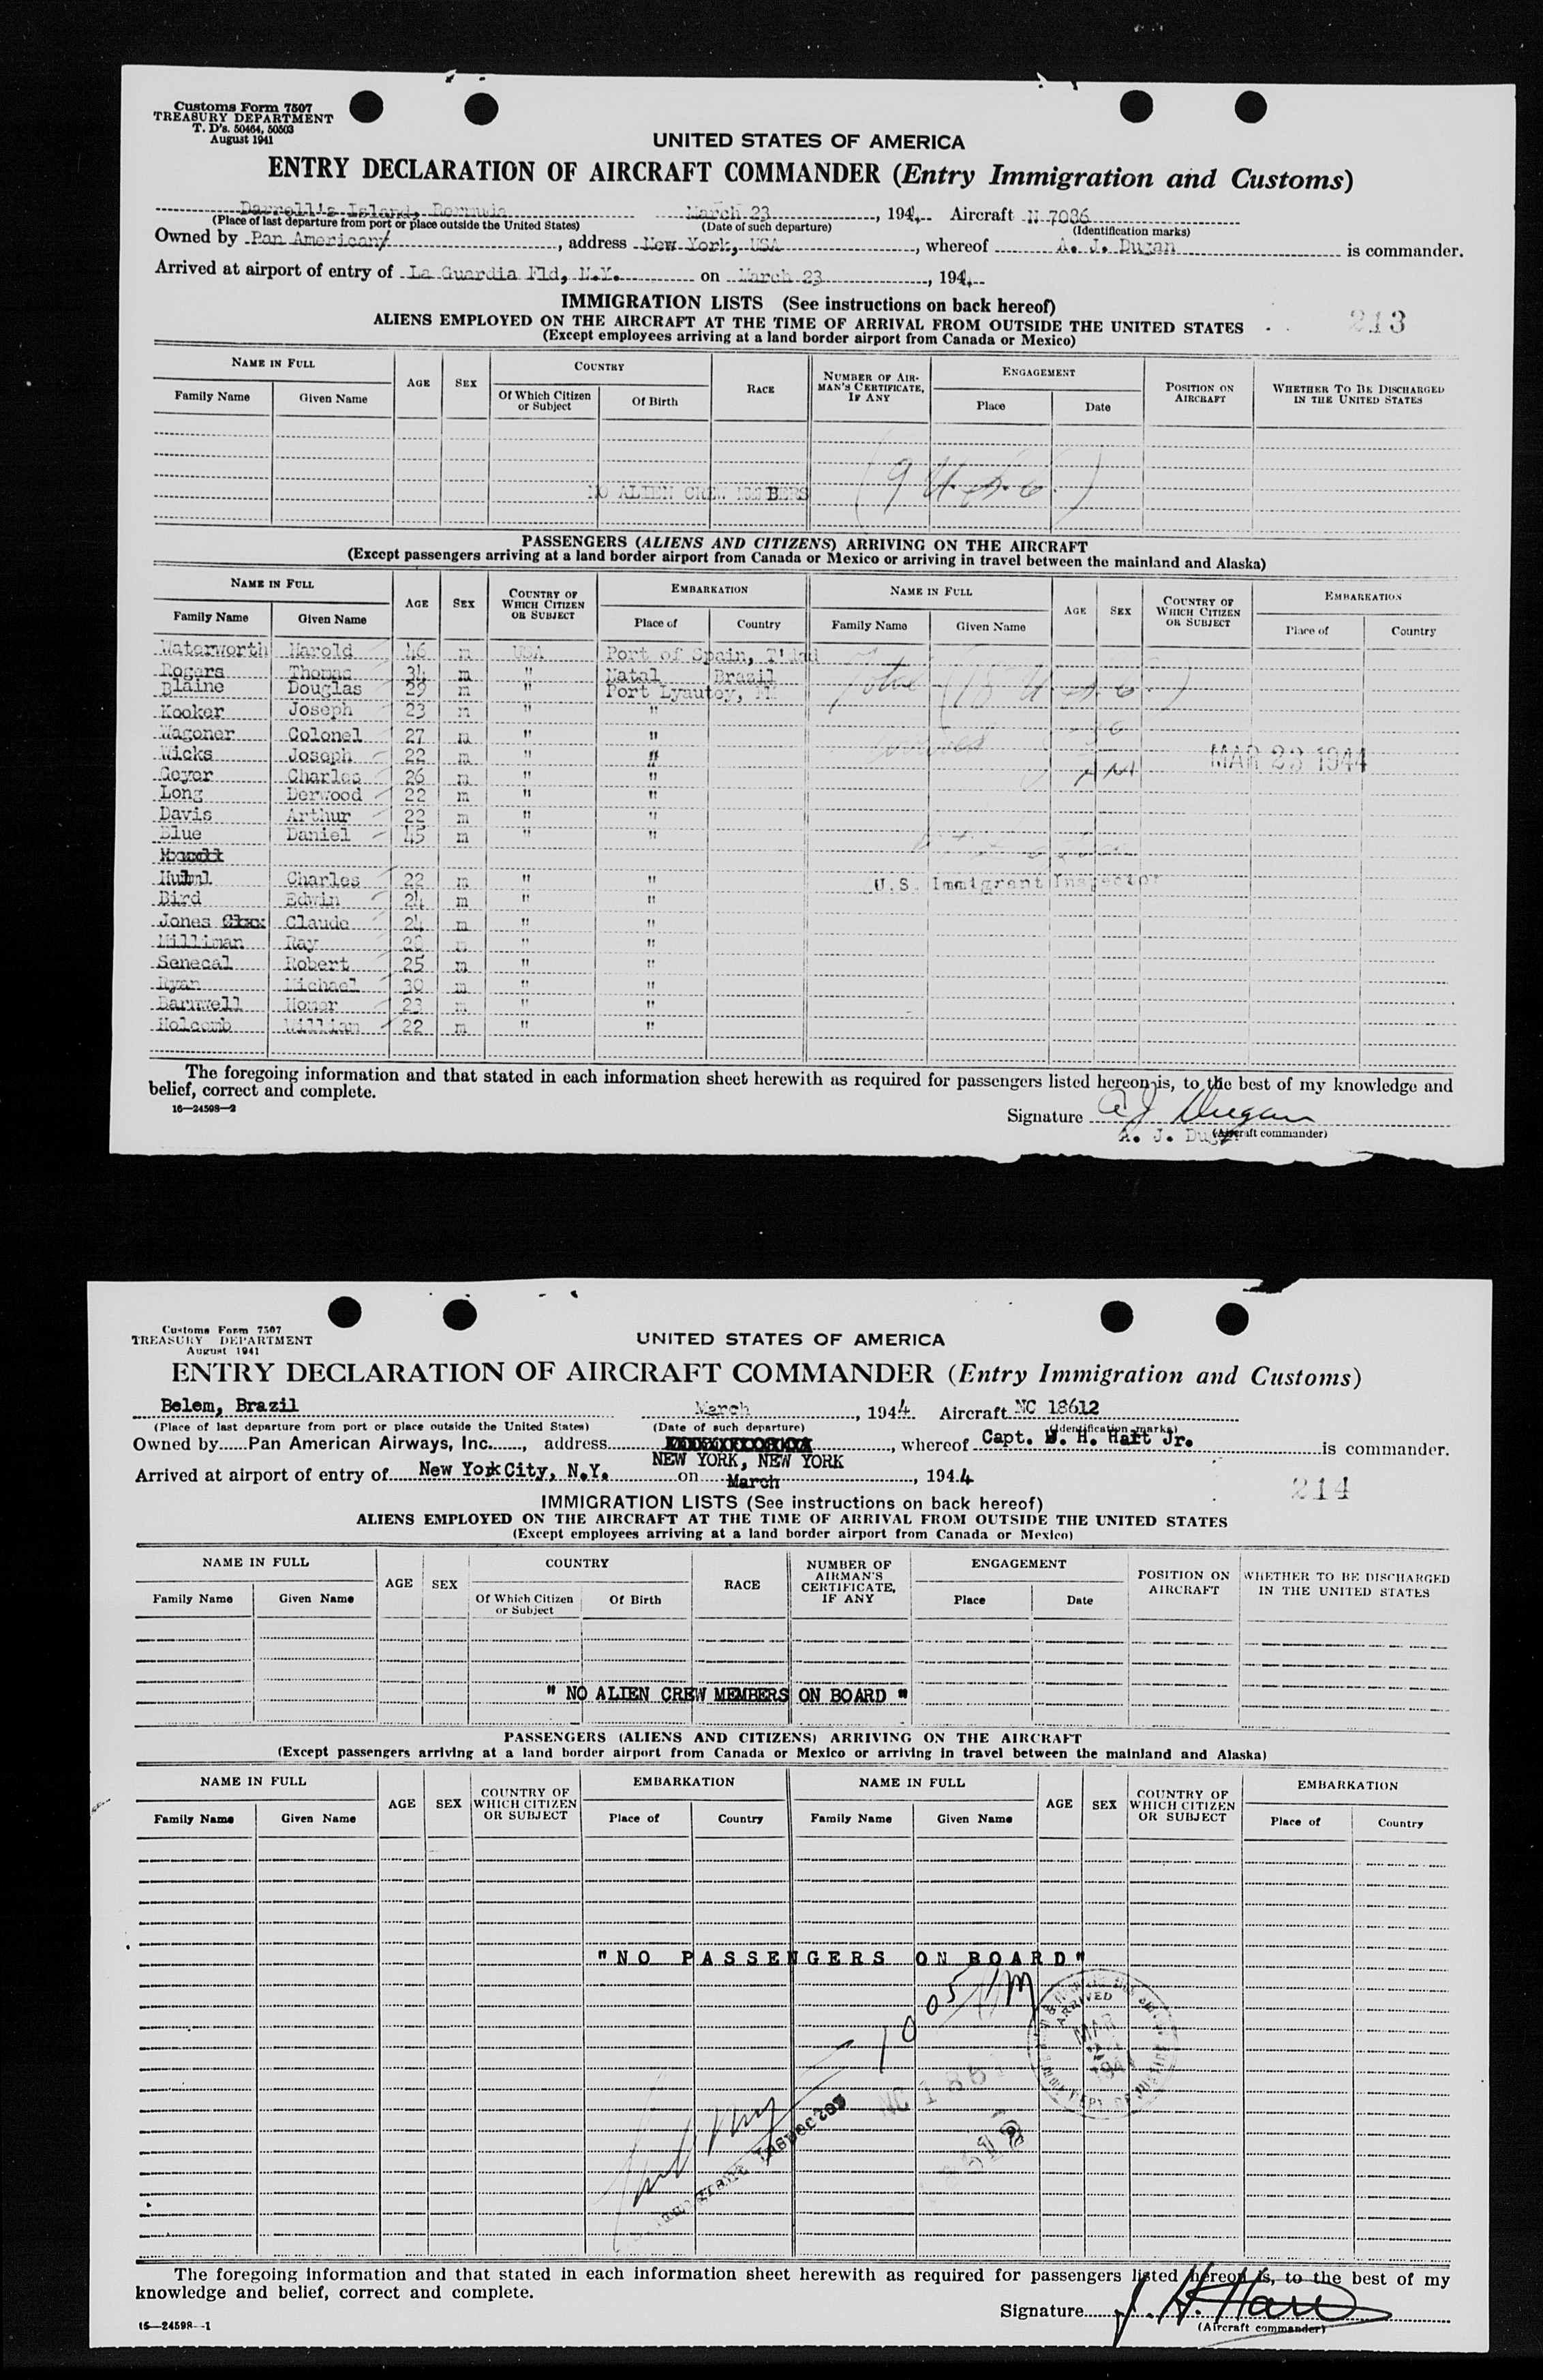 Customs Form 7507
TREASURY DEPARTMENT
T. D's. 50464, 50503
August 1941
UNITED STATES OF AMERICA
ENTRY DECLARATION OF AIRCRAFT COMMANDER (Entry Immigration and Customs)
Darrell's Island, Bermuda March 23, 1944 Aircraft N 7086
(Place of last departure from port or place outside the United States) (Date of such departure) (Identification marks)
Owned by Pan American, address New York, USA, whereof A. J. Dugan is commander.
Arrived at airport of entry of La Guardia Fld, N.Y. on March 23, 194
IMMIGRATION LISTS (See instructions on back hereof)
ALIENS EMPLOYED ON THE AIRCRAFT AT THE TIME OF ARRIVAL FROM OUTSIDE THE UNITED STATES 213
(Except employees arriving at a land border airport from Canada or Mexico)
NAME IN FULL AGE SEX COUNTRY RACE NUMBER OF AIRMAN'S CERTIFICATE, IF ANY ENGAGEMENT POSITION ON AIRCRAFT WHETHER TO BE DISCHARGED IN THE UNITED STATES
Family Name Given Name Of Which Citizen or Subject Of Birth Place Date
NO ALIEN CREW MEMBERS (9 U.S.C.)
PASSENGERS (ALIENS AND CITIZENS) ARRIVING ON THE AIRCRAFT
(Except passengers arriving at a land border airport from Canada or Mexico or arriving in travel between the mainland and Alaska)
NAME IN FULL AGE SEX COUNTRY OF WHICH CITIZEN OR SUBJECT EMBARKATION NAME IN FULL AGE SEX COUNTRY OF WHICH CITIZEN OR SUBJECT EMBARKATION
Family Name Given Name Place of Country Family Name Given Name Place of Country
Waterworth Harold 46 m USA Port of Spain, T'dad
Rogers Thomas 34 m " Natal Brazil Total (18 U.S.C.)
Blaine Douglas 29 m " Port Lyautey,
Kooker Joseph 23 m " "
Wagoner Colonel 27 m " "
Wicks Joseph 22 m " " MAR 23 1944
Geyer Charles 26 m " "
Long Derwood 22 m " "
Davis Arthur 22 m " "
Blue Daniel 45 m " "
Charles 22 m " " U.S. Immigrant Inspector
Bird Edwin 24 m " "
Jones Claude 24 m " "
Milliman Ray m " "
Senecal Robert 25 m " "
Ryan Michael 30 m " "
Barnwell Homer 23 m " "
Holcomb William 22 m " "
The foregoing information and that stated in each information sheet herewith as required for passengers listed hereon is, to the best of my knowledge and
belief, correct and complete.
16—24598—2
Signature A J Dugan
A. J. Dugan (Aircraft commander)
Customs Form 7507
TREASURY DEPARTMENT
August 1941
UNITED STATES OF AMERICA
ENTRY DECLARATION OF AIRCRAFT COMMANDER (Entry Immigration and Customs)
Belem, Brazil March, 1944 Aircraft NC 18612
(Place of last departure from port or place outside the United States) (Date of such departure) (Identification marks)
Owned by Pan American Airways, Inc., address, whereof Capt. J. H. Hart Jr. is commander.
NEW YORK, NEW YORK
Arrived at airport of entry of New York City, N.Y. on March, 1944
214
IMMIGRATION LISTS (See instructions on back hereof)
ALIENS EMPLOYED ON THE AIRCRAFT AT THE TIME OF ARRIVAL FROM OUTSIDE THE UNITED STATES
(Except employees arriving at a land border airport from Canada or Mexico)
NAME IN FULL AGE SEX COUNTRY RACE NUMBER OF AIRMAN'S CERTIFICATE, IF ANY ENGAGEMENT POSITION ON AIRCRAFT WHETHER TO BE DISCHARGED IN THE UNITED STATES
Family Name Given Name Of Which Citizen or Subject Of Birth Place Date
" NO ALIEN CREW MEMBERS ON BOARD "
PASSENGERS (ALIENS AND CITIZENS) ARRIVING ON THE AIRCRAFT
(Except passengers arriving at a land border airport from Canada or Mexico or arriving in travel between the mainland and Alaska)
NAME IN FULL AGE SEX COUNTRY OF WHICH CITIZEN OR SUBJECT EMBARKATION NAME IN FULL AGE SEX COUNTRY OF WHICH CITIZEN OR SUBJECT EMBARKATION
Family Name Given Name Place of Country Family Name Given Name Place of Country
"NO PASSENGERS ON BOARD"
1005 AM
ARRIVED
MAR
Immigrant Inspector
The foregoing information and that stated in each information sheet herewith as required for passengers listed hereon is, to the best of my
knowledge and belief, correct and complete.
Signature J. H. Hart
16—24598—1
(Aircraft commander)